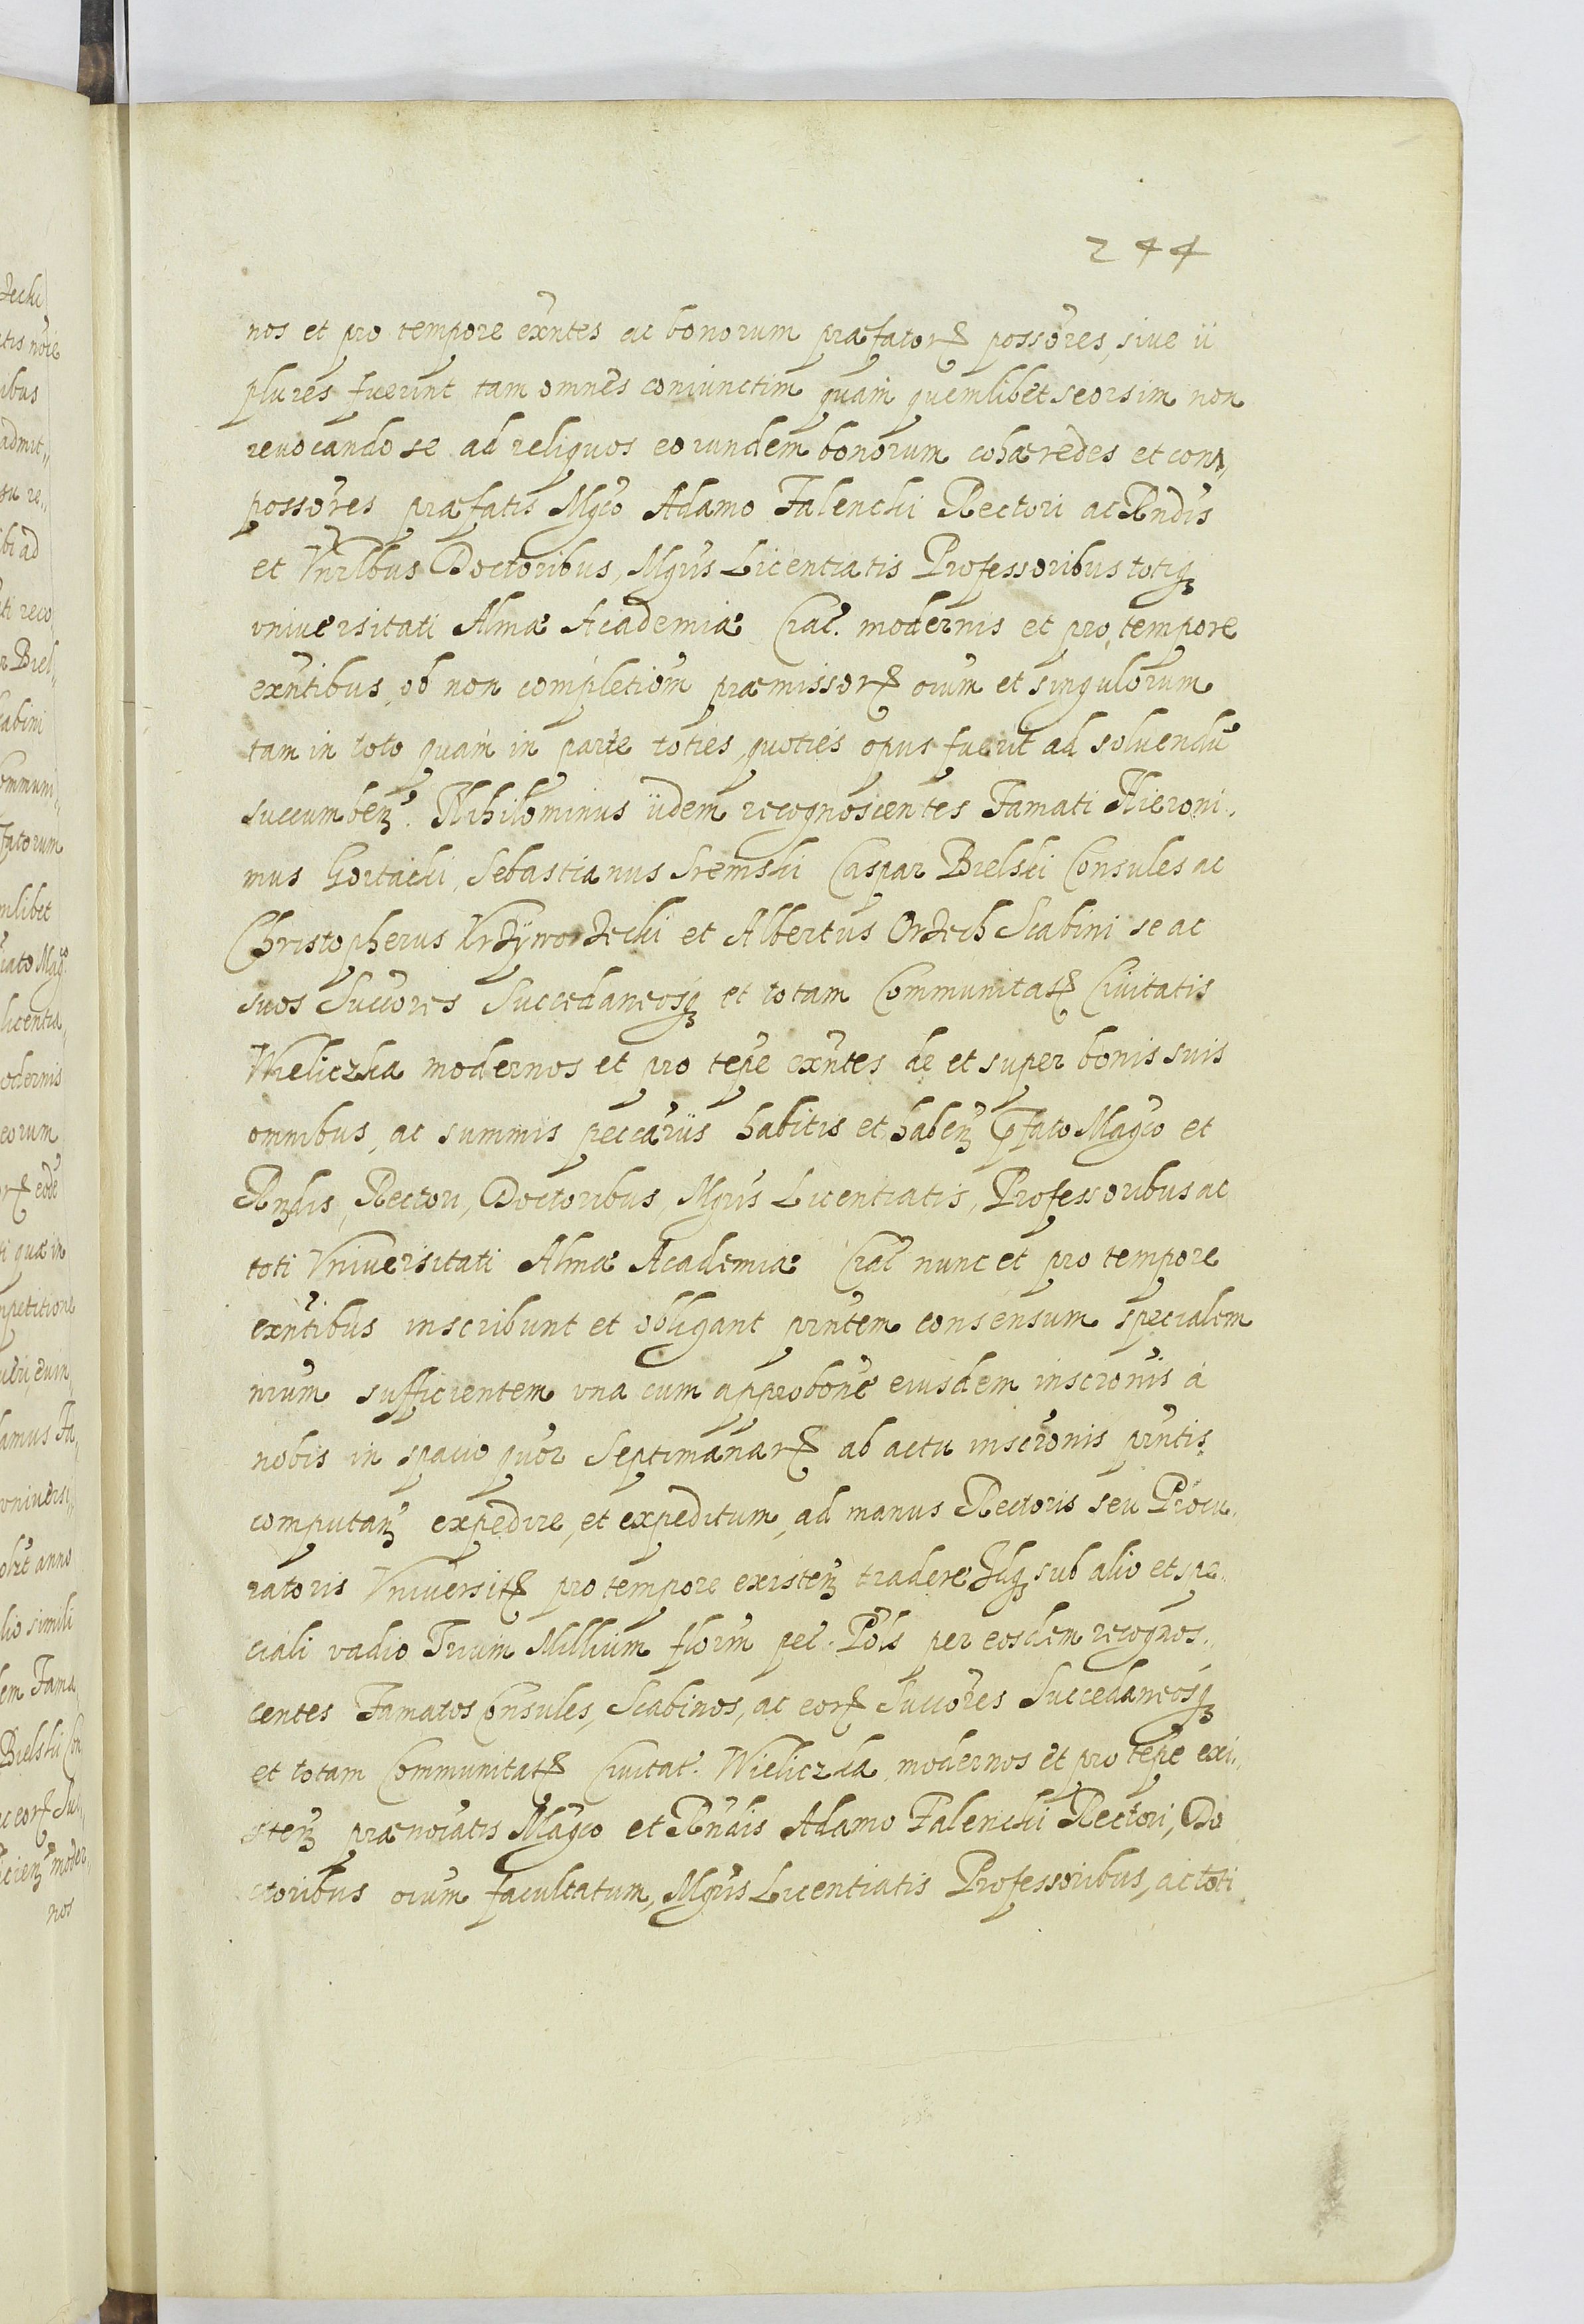 244
nos et pro tempore exñtes ac bonorum præfatorꝝ possores, siue ii
plures fuerint tam omnes coniunctim quam quemlibet seorsim non
reuocando se ad reliquos eorundem bonorum cohæredes et com„
possores præfatis Mgco Adamo Falencki Rectori ac Rndis
et Vnrlbus Doctoribus, Mgris Licentiatis Professoribus totiqꝫ
vniuersitati Almæ Academiæ Crac. modernis et pro tempore
exñtibus, ob non completiom præmissorꝝ oium et singulorum
tam in toto quam in parte toties, quoties opus fuerit ad soluendũ
succumbenꝫ. Nihilominus iidem recognoscentes Famati Hieroni„
mus Gortacki, Sebastianus Sremski Caspar Bielski Consules ac
Christopherus Krzÿworzecki et Albertus Orzech Scabini se ac
suos Succores Succedaneosqꝫ et totam Communitatꝝ Ciuitatis
Wieliczka modernos et pro tẽpe exñtes de et super bonis suis
omnibus, ac summis peccariis habitis et habenꝫ ꝑfato Magco et
Rꝫdis, Rectori, Doctoribus, Mgris Licentiatis, Professoribus ac
toti Vniuersitati Almæ Academiæ Crac nunc et pro tempore
exñtibus inscribunt et obligant prñtem consensum specialem
nrum sufficientem vna cum approbone eiusdem inscronis à
nobis in spacio quor Septimanarꝝ ab actu inscronis prñtis
computanꝫ expedire, et expeditum, ad manus Rectoris seu Procu„
ratoris Vniuersitꝝ pro tempore existenꝫ tradere Idqꝫ sub alio et spe„
ciali vadio Trium Millium florm pec. Pols per eosdem recognos„
centes Famatos Consules, Scabinos, ac eorꝝ Succores Succedaneosqꝫ
et totam Communitatꝝ Ciuitat. Wieliczka modernos et pro tẽpe exi„
stenꝫ prænotatis Magco et Rndis Adamo Falencki Rectori, Do
ctoribus oium facultatum, Mgris Licentiatis Professoribus, ac toti